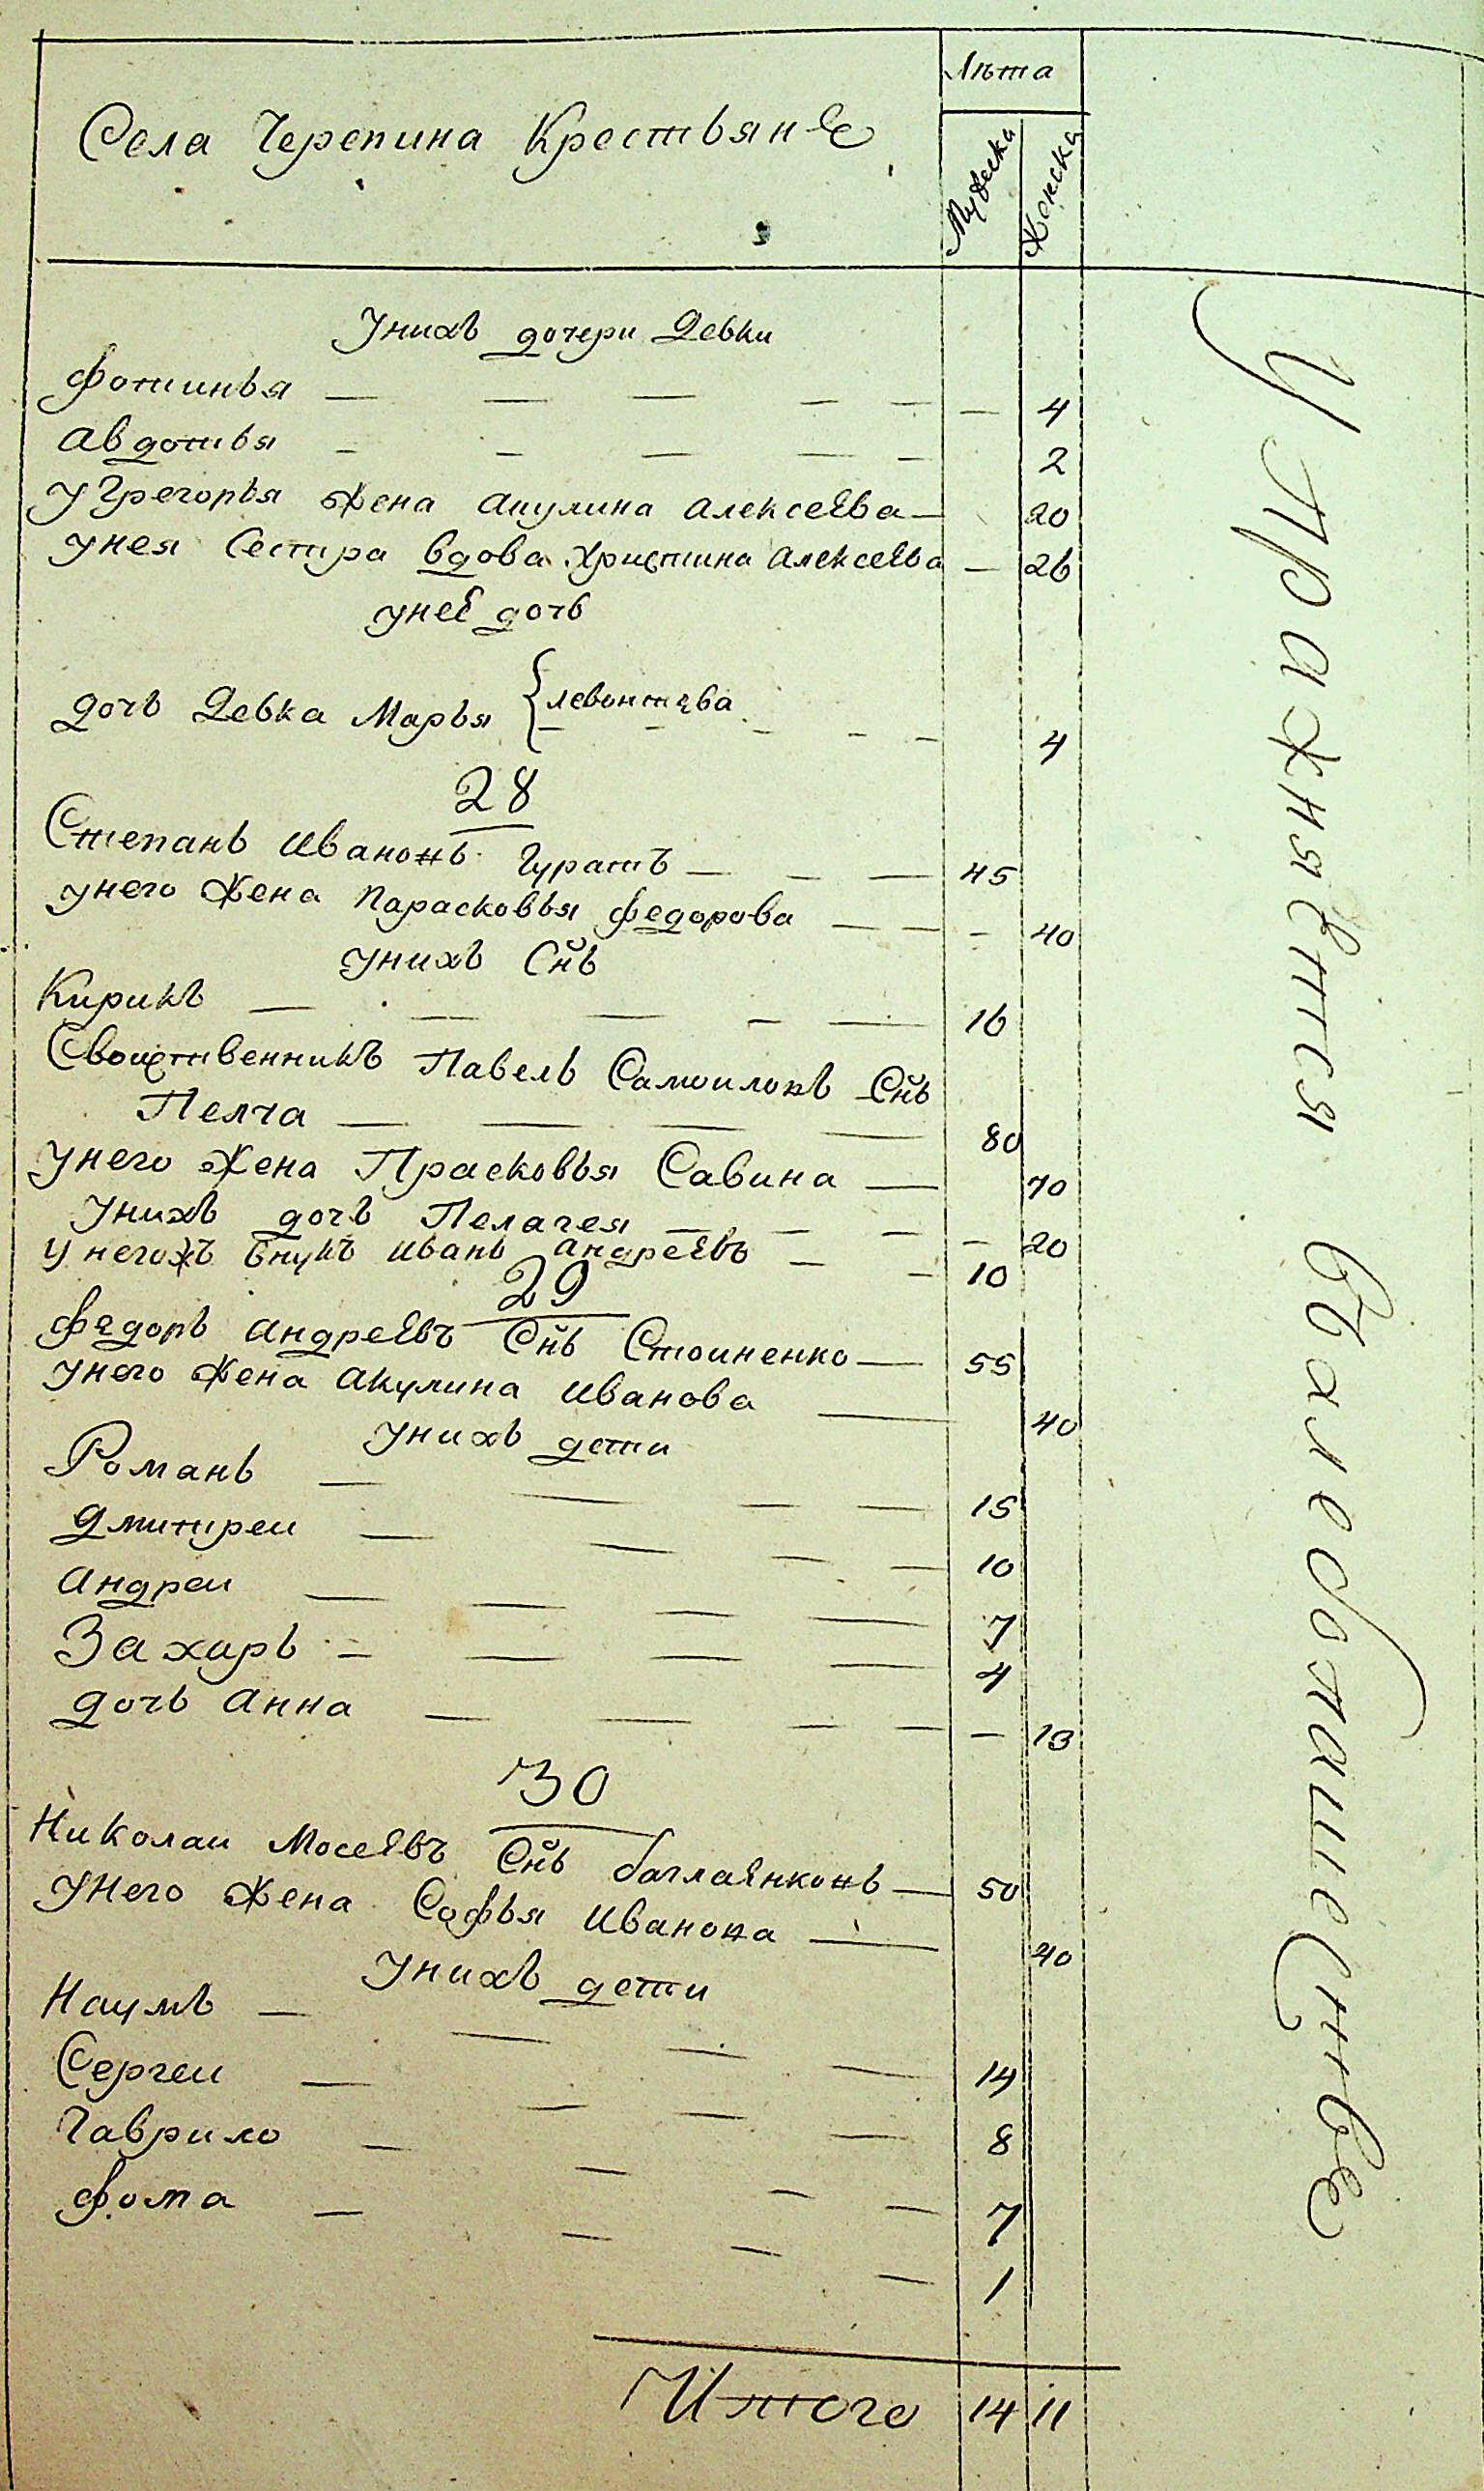 Села Черепина Крестьяне
Лѣта
Мужеска
Женска
Унихъ дочери Девки
Фотинья — — — — — — 4
Авдотья — — — — — 2
у Григорья жена Акулина Алексеева — 20
унея Сестра вдова Христина Алексеева — 26
унее дочь
дочь Девка Марья { левонтева — — — — — 4
28
Степанъ Ивановъ Гуратъ — — — 45
унего жена Парасковья Федорова — — — — 40
унихъ Снъ
Кирикъ — — — — — 16
Своиственникъ Павелъ Самоиловъ Снъ
Пелча — — — — 80
унего жена Прасковья Савина — 70
унихъ дочь Пелагея — — — — — 20
у негожъ внукъ Иванъ Андреевъ — — 10
29
Федоръ Андреевъ Снъ Стоиненко — 55
унего жена Акулина Иванова — 40
унихъ дети
Романъ — — — — 15
Дмитреи — — — — 10
Андреи — — — — 7
Захаръ — — — — 4
дочь Анна — — — — — 13
30
Николаи Мосеевъ Снъ баглаенковъ — 50
унего жена Софья Иванова — 40
унихъ дети
Наумъ — — — — 14
Сергеи — — — — 8
Гаврило — — — — 7
Фома — — — — 1
Итого 14 11
Упражняется вхлебопашественъ